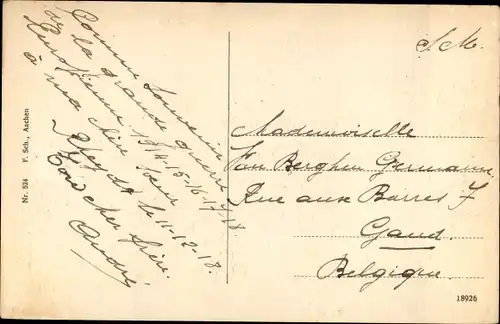 Comme souvenir
de la grande guerre
Européenne 1914-15-16-17-18.
à ma chère sœur
Rheydt le 11-12-18.
Ton cher frère.
André
S.M.
Mademoiselle
Van Berghen Germaine
Rue aux Barres 7
Gand.
Belgique.
Nr. 524 F. Sch., Aachen
18926